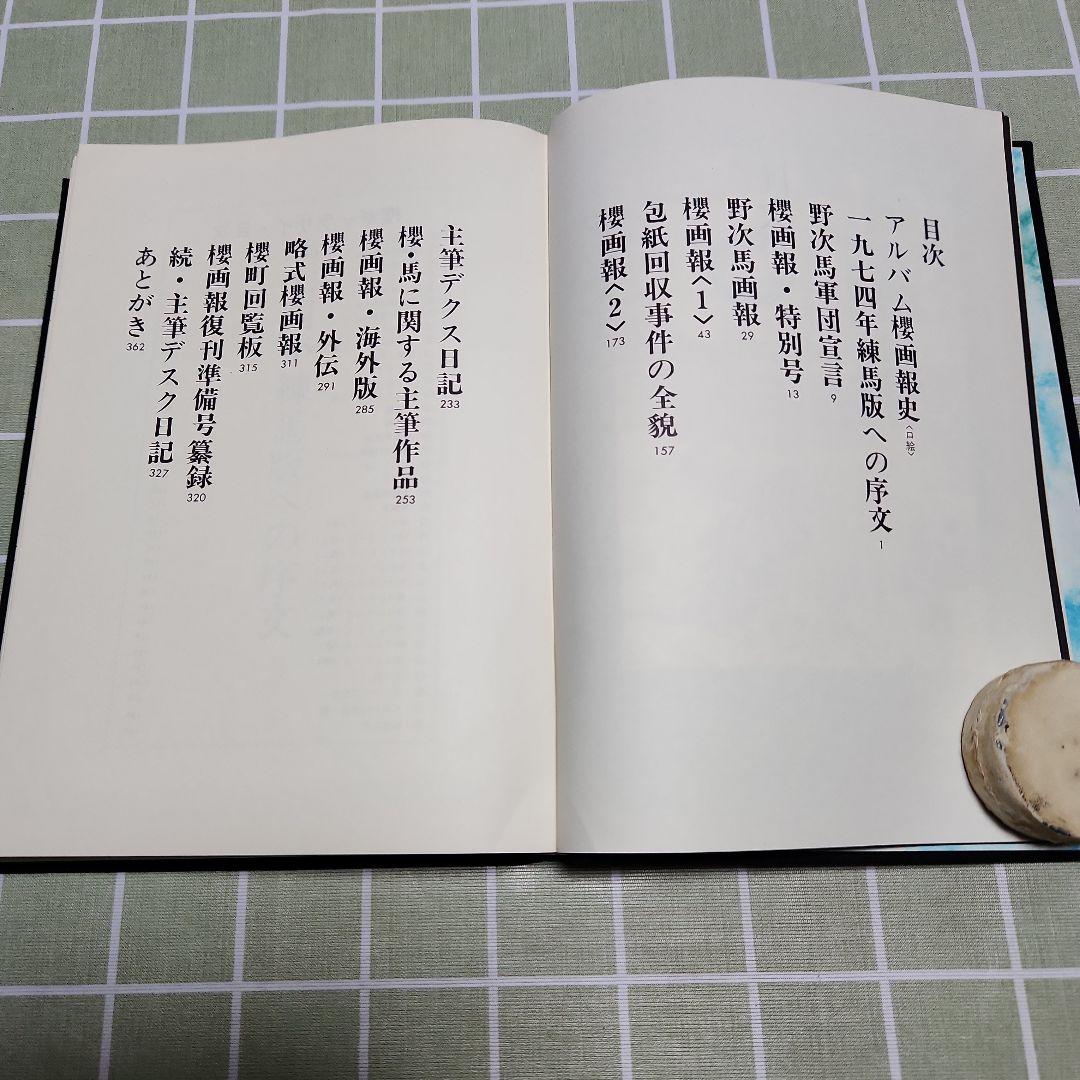 目次
アルバム櫻画報史〈口絵〉
一九七四年練馬版への序文 1
野次馬軍団宣言 9
櫻画報・特別号 13
野次馬画報 29
櫻画報〈1〉 43
包紙回収事件の全貌 157
櫻画報〈2〉 173
主筆デクス日記 233
櫻・馬に関する主筆作品 253
櫻画報・海外版 285
櫻画報・外伝 291
略式櫻画報 311
櫻町回覧板 315
櫻画報復刊準備号纂録 320
続・主筆デスク日記 327
あとがき 362